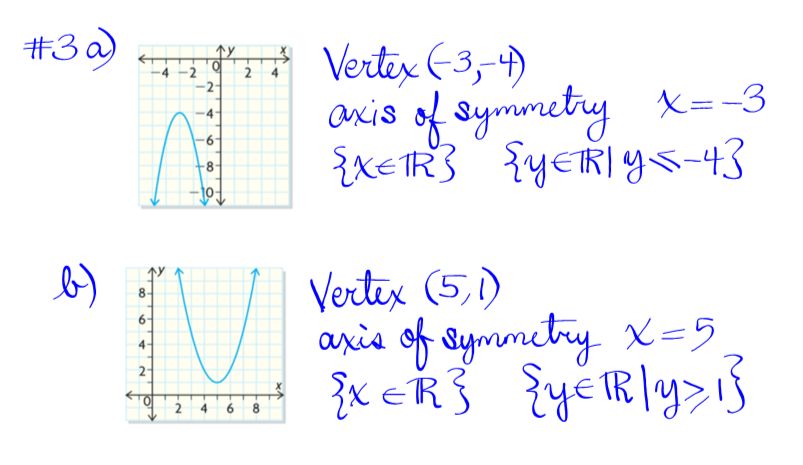 #3 a)
y
x
-4 -2 0 2 4
-2
-4
-6
-8
-10
Vertex (-3,-4)
axis of symmetry x = -3
{x∈ℝ} {y∈ℝ| y ≤ -4}
b)
y
8
6
4
2
x
0 2 4 6 8
Vertex (5,1)
axis of symmetry x = 5
{x ∈ℝ} {y∈ℝ | y ≥ 1}